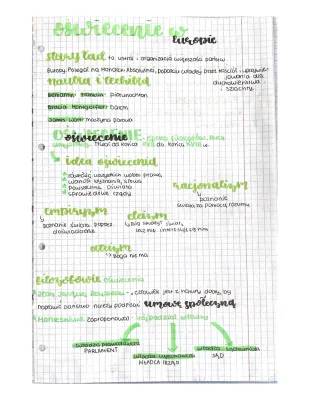 oświecenie w
Europie
stary ład to ustrój i organizacja większości państw
Europy. Polegał na monarchii absolutnej, poparciu władzy przez kościół i
nauka i technika
duchowieństwa
i szlachty.
Benjamin Franklin piorunochron
Bracia Montgolfier balon
James Watt maszyna parowa
oświecenie
trwał od końca do końca XVIII w.
idea oświecenia
równość wszystkich wobec prawa,
wolność wyznania, słowa
powszechna oświata
sprawiedliwe rządy
racjonalizm
poznanie
świata za pomocą rozumu
empiryzm
poznanie świata poprzez
doświadczenie
deizm
bóg stworzył świat,
lecz nie interesuje się nim
ateizm
Boga nie ma
filozofowie oświecenia
Jean Jacques Rousseau - człowiek jest z natury dobry, by
naprawić państwo należy podpisać umowę społeczną
Monteskiusz zaproponował - trójpodział władzy
władza prawodawcza
PARLAMENT
władza wykonawcza
WŁADCA I RZĄD
władza sądownicza
SĄD